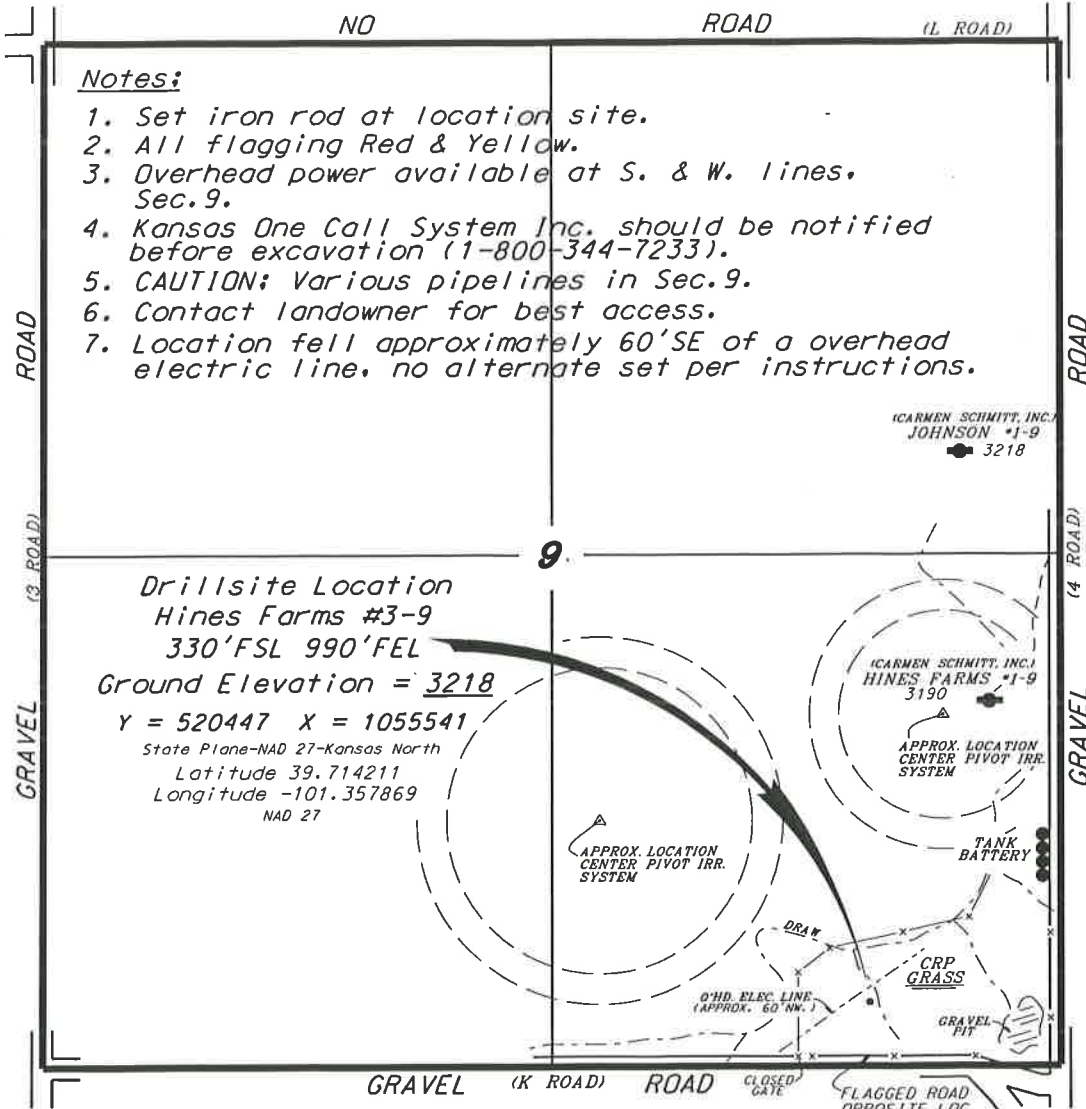 NO ROAD (L ROAD)
Notes:
1. Set iron rod at location site.
2. All flagging Red & Yellow.
3. Overhead power available at S. & W. lines.
Sec.9.
4. Kansas One Call System Inc. should be notified
before excavation (1-800-344-7233).
5. CAUTION: Various pipelines in Sec.9.
6. Contact landowner for best access.
7. Location fell approximately 60'SE of a overhead
electric line, no alternate set per instructions.
ROAD
(3 ROAD)
GRAVEL
ROAD
(4 ROAD)
GRAVEL
(CARMEN SCHMITT, INC.)
JOHNSON #1-9
3218
9
Drillsite Location
Hines Farms #3-9
330'FSL 990'FEL
Ground Elevation = 3218
Y = 520447 X = 1055541
State Plane-NAD 27-Kansas North
Latitude 39.714211
Longitude -101.357869
NAD 27
(CARMEN SCHMITT, INC.)
HINES FARMS #1-9
3190
APPROX. LOCATION
CENTER PIVOT IRR.
SYSTEM
APPROX. LOCATION
CENTER PIVOT IRR.
SYSTEM
TANK
BATTERY
DRAW
CRP
GRASS
O'HD. ELEC. LINE
(APPROX. 60'NW.)
GRAVEL
PIT
GRAVEL (K ROAD) ROAD
CLOSED
GATE
FLAGGED ROAD
OPPOSITE LOC